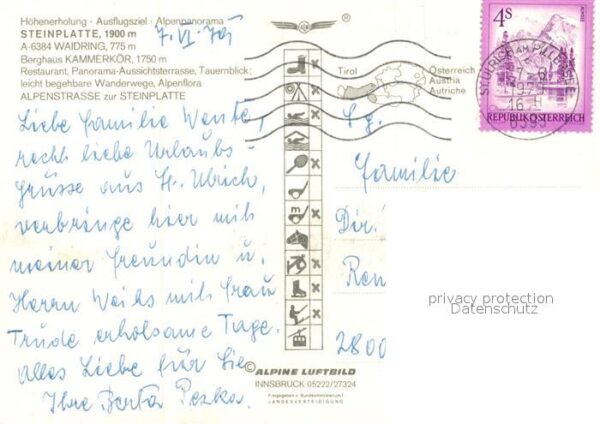 Höhenerholung · Ausflugsziel · Alpenpanorama
STEINPLATTE, 1900 m
A-6384 WAIDRING, 775 m
Berghaus KAMMERKÖR, 1750 m
Restaurant, Panorama-Aussichtsterrasse, Tauernblick;
leicht begehbare Wanderwege, Alpenflora
ALPENSTRASSE zur STEINPLATTE
7. VI. 79
Liebe Familie Wente,
recht liebe Urlaubs-
grüsse aus St. Ulrich,
verbringe hier mit
meiner Freundin u.
Herrn Weihs mit Frau
Trude erholsame Tage.
Alles Liebe für Sie
Ihre Berta Pezka
Tirol
Österreich
Austria
Autriche
4S
REPUBLIK ÖSTERREICH
ST. ULRICH AM PILLERSEE
1979
Familie
Dir.
Ren
2800
privacy protection
Datenschutz
© ALPINE LUFTBILD
INNSBRUCK 05222/27324
Freigegeben v. Bundesministerium f.
LANDESVERTEIDIGUNG